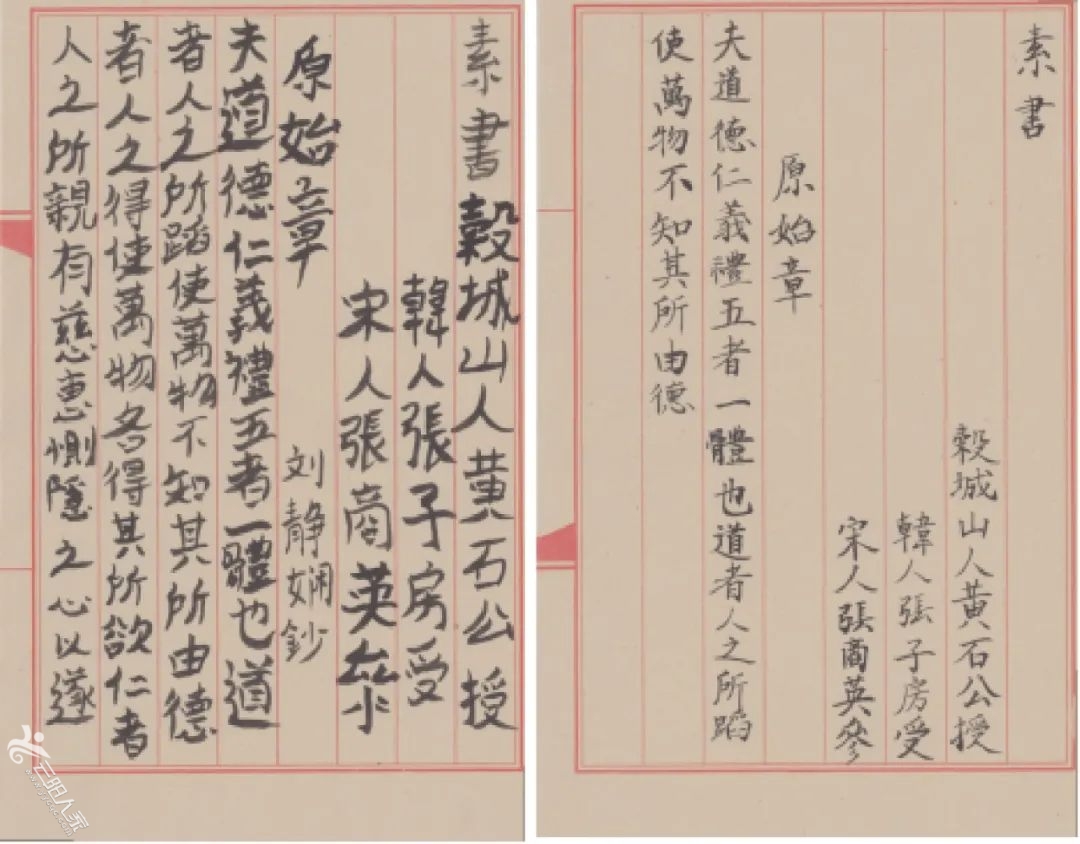 素書
榖城山人黃石公授
韓人張子房受
宋人張商英參
原始章
夫道德仁義禮五者一體也道者人之所蹈
使萬物不知其所由德
素書榖城山人黃石公授
韓人張子房受
宋人張商英叅
原始章 刘静娴鈔
夫道德仁義禮五者一體也道
者人之所蹈使萬物不知其所由德
者人之得使萬物各得其所欲仁者
人之所親有慈惠惻隱之心以遂
云阳人家